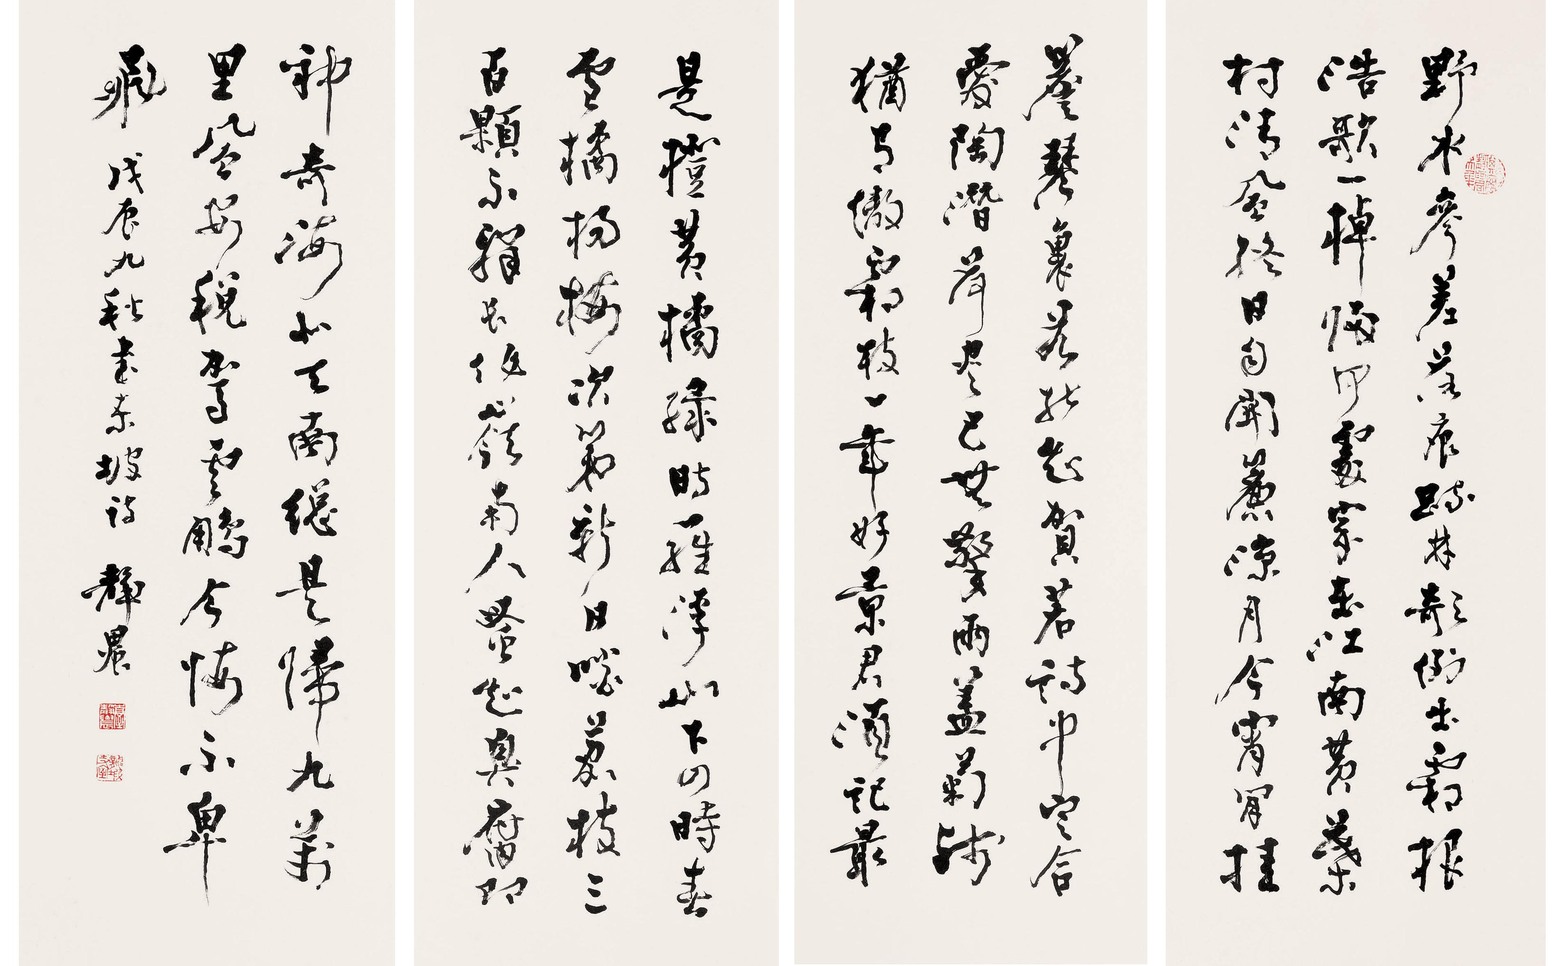 野水參差落痕踈林欹倒出霜根
浩歌一棹歸何處家在江南黃葉
村清風終日自開簾涼月今宵肯挂
簷琴裏若能知賀若詩中定合
愛陶潛荷盡已無擎雨蓋菊殘
猶有傲霜枝一年好景君須記最
是橙黃橘綠時羅浮山下四時春
盧橘楊梅次第新日啖荔枝三
百顆不辭長作嶺南人蚤知臭腐即
神奇海北天南總是歸九萬
里風安稅駕雲鵬今悔不卑
飛 戊辰九秋書東坡詩 靜農